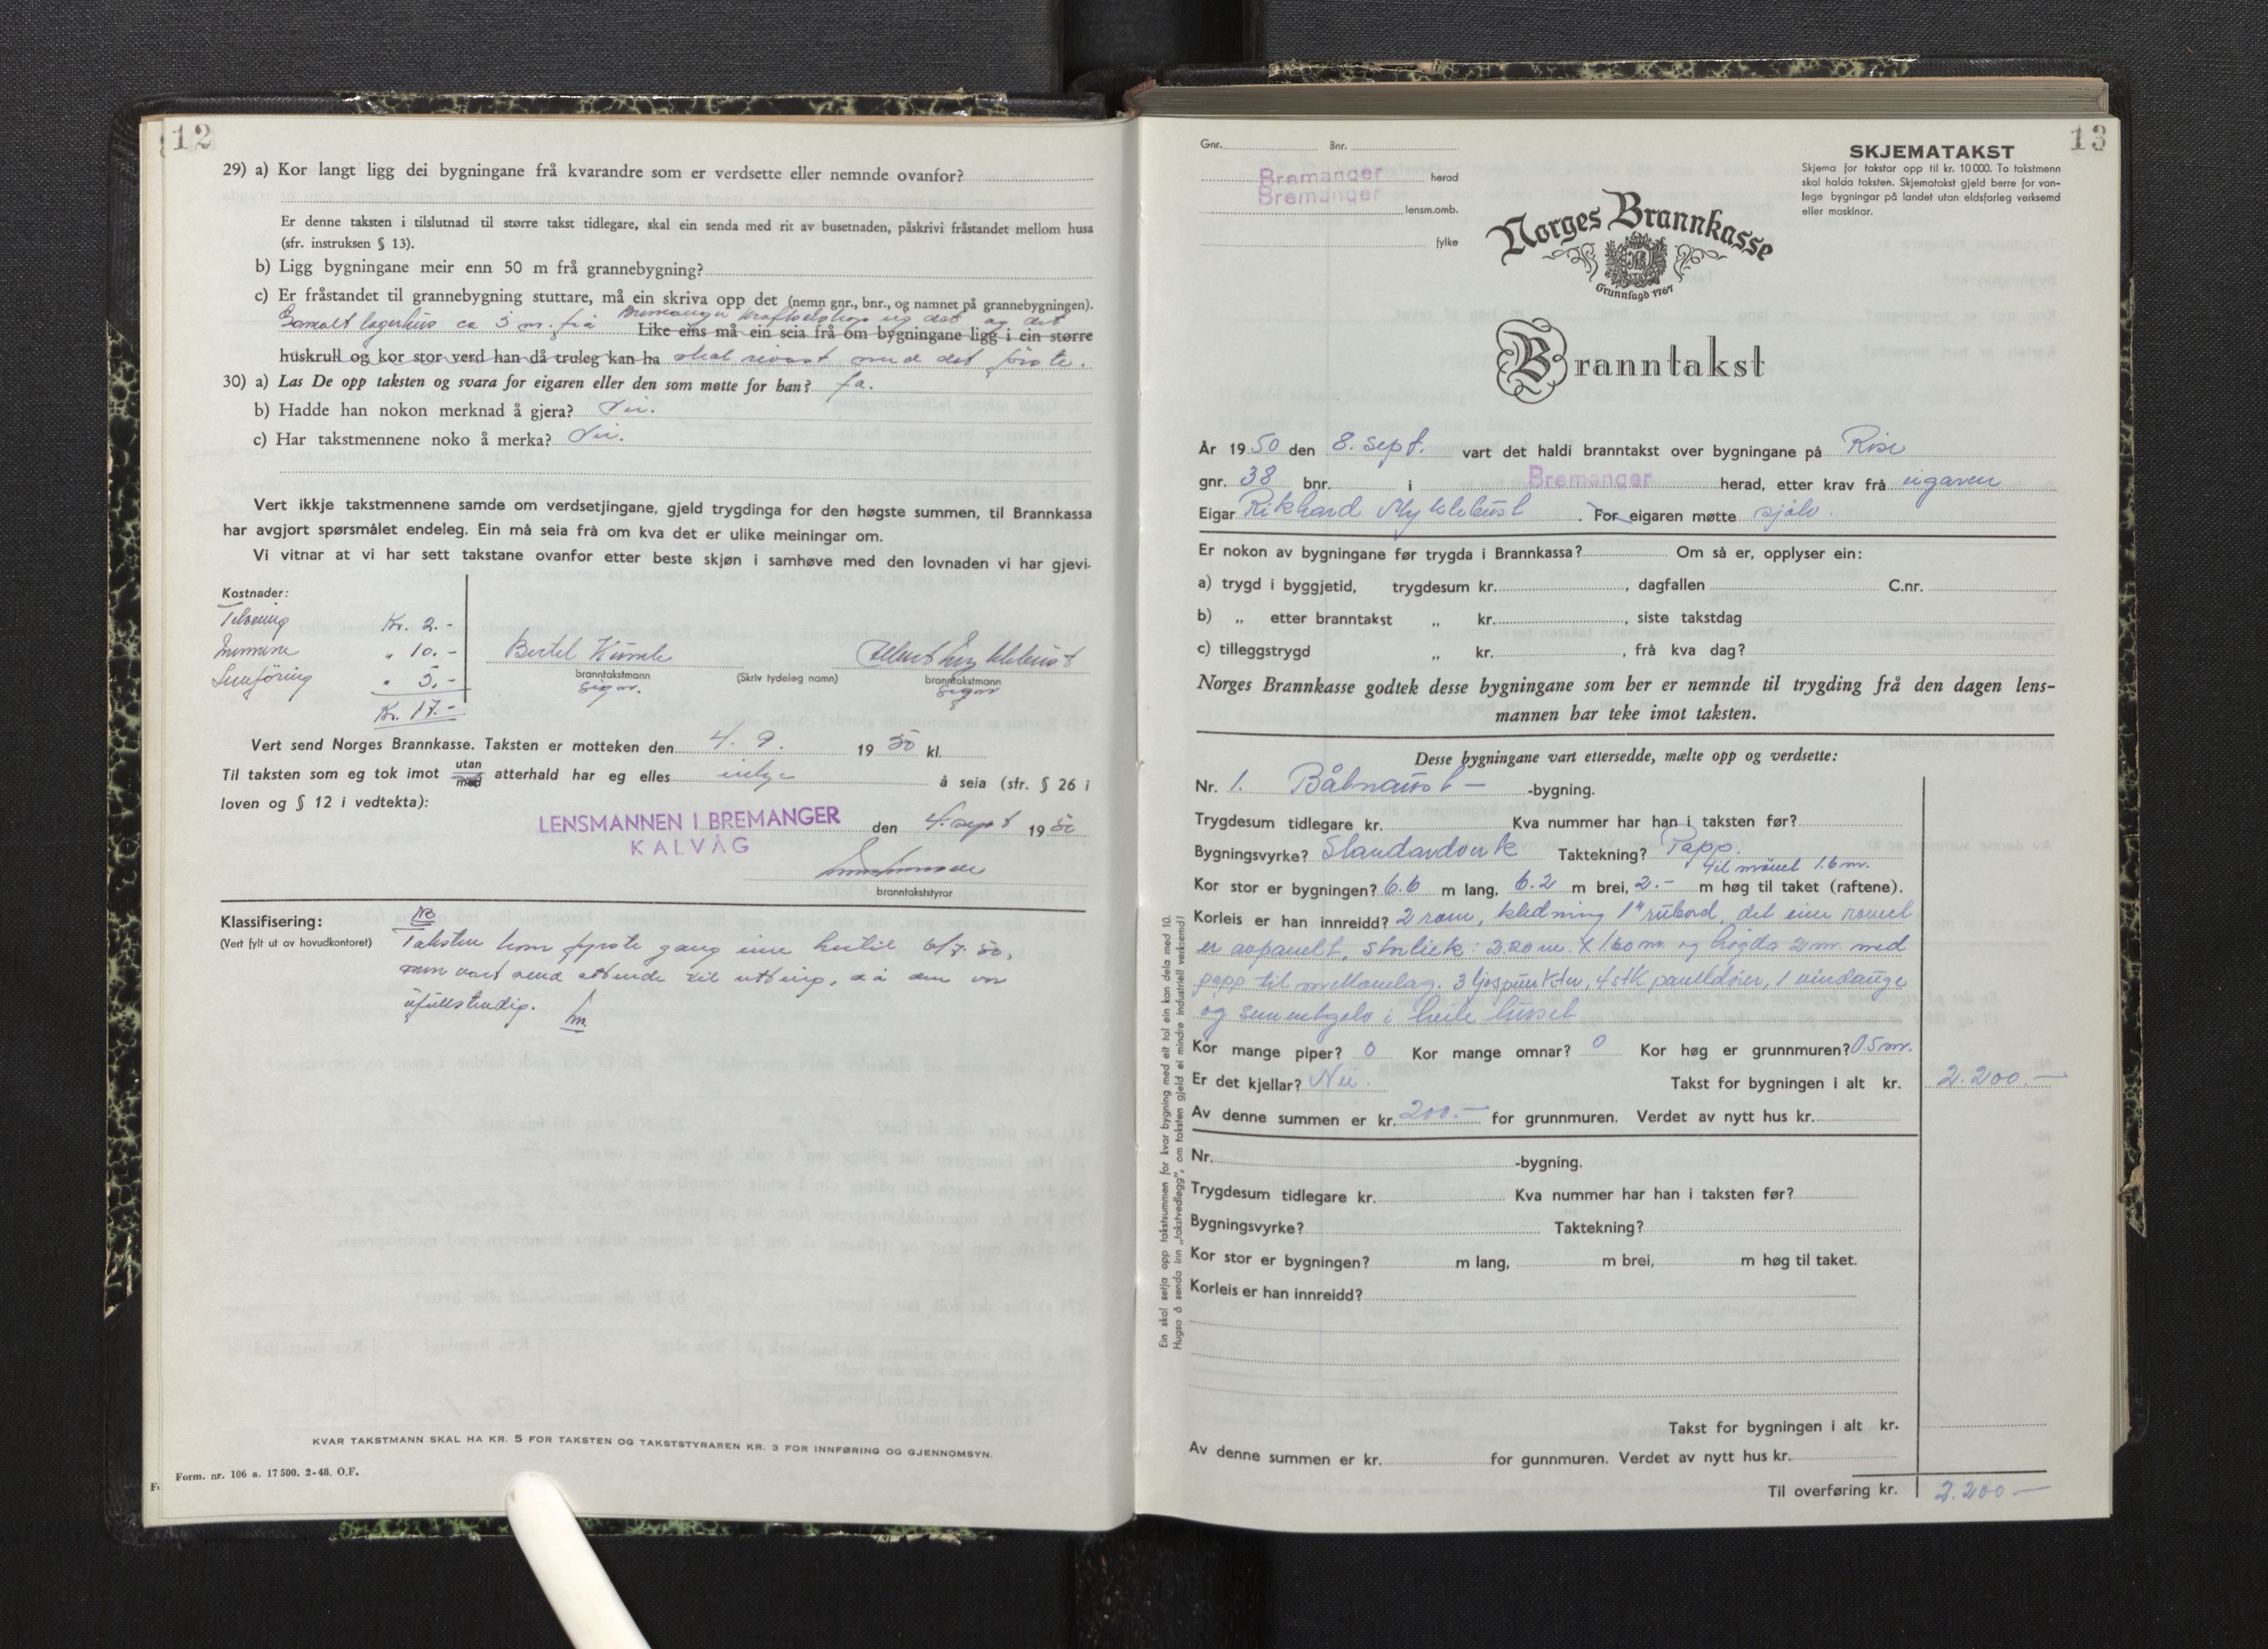 12
29) a) Kor langt ligg dei bygningane frå kvarandre som er verdsette eller nemnde ovanfor?
Er denne taksten i tilslutnad til større takst tidlegare, skal ein senda med rit av busetnaden, påskrivi fråstandet mellom husa
(sfr. instruksen § 13).
b) Ligg bygningane meir enn 50 m frå grannebygning?
c) Er fråstandet til grannebygning stuttare, må ein skriva opp det (nemn gnr., bnr., og namnet på grannebygningen).
Gamalt lagerhus ca 5 m. frå Bremanger og det
Like eins må ein seia frå om bygningane ligg i ein større
huskrull og kor stor verd han då truleg kan ha skal rivast med det første.
30) a) Las De opp taksten og svara for eigaren eller den som møtte for han? Ja.
b) Hadde han nokon merknad å gjera? Nei.
c) Har takstmennene noko å merka? Nei.
Vert ikkje takstmennene samde om verdsetjingane, gjeld trygdinga for den høgste summen, til Brannkassa
har avgjort spørsmålet endeleg. Ein må seia frå om kva det er ulike meiningar om.
Vi vitnar at vi har sett takstane ovanfor etter beste skjøn i samhøve med den lovnaden vi har gjevi.
Kostnader:
Kr. 2.-
Mennene " 10.-
Innføring " 5.-
Kr. 17.-
Bertel Myklebust
branntakstmann (Skriv tydeleg namn) branntakstmann
sign. sign
Vert send Norges Brannkasse. Taksten er motteken den 4. 9. 1950 kl.
Til taksten som eg tok imot utan med atterhald har eg elles inkje å seia (sfr. § 26 i
loven og § 12 i vedtekta):
LENSMANNEN I BREMANGER den 4. sept 1950
KALVÅG
branntakststyrar
Klassifisering:
(Vert fylt ut av hovudkontoret)
NB
Taksten kom fyrste gang inn hertil 6/7 50,
men vart send attende til retting, då den var
ufullstendig.
KVAR TAKSTMANN SKAL HA KR. 5 FOR TAKSTEN OG TAKSTSTYRAREN KR. 3 FOR INNFØRING OG GJENNOMSYN.
Form. nr. 106 a. 17 500. 2-48. O.F.
13
Gnr. Bnr.
Bremanger herad
Bremanger lensm.omb.
fylke
SKJEMATAKST
Skjema for takstar opp til kr. 10 000. To takstmenn
skal halda taksten. Skjematakst gjeld berre for van-
lege bygningar på landet utan eldsfarleg verksemd
eller maskinar.
Norges Brannkasse
Grunnlagd 1767
Branntakst
År 1950 den 8. sept. vart det haldi branntakst over bygningane på Rise
gnr. 38 bnr. i Bremanger herad, etter krav frå eigaren
Eigar Rikhard Myklebust. For eigaren møtte sjølv.
Er nokon av bygningane før trygda i Brannkassa? Om så er, opplyser ein:
a) trygd i byggjetid, trygdesum kr. , dagfallen C.nr.
b) „ etter branntakst „ kr. , siste takstdag
c) tilleggstrygd „ kr. , frå kva dag?
Norges Brannkasse godtek desse bygningane som her er nemnde til trygding frå den dagen lens-
mannen har teke imot taksten.
Desse bygningane vart ettersedde, mælte opp og verdsette:
Nr. 1. Båtnaust - -bygning.
Trygdesum tidlegare kr. Kva nummer har han i taksten før?
Bygningsvyrke? Standardverk Taktekning? Papp.
til mønet 1.6 m.
Kor stor er bygningen? 6.6 m lang, 6.2 m brei, 2.- m høg til taket (raftene).
Korleis er han innreidd? 2 rom, kledning 1" rubord, det eine romet
er avpanelt, storleik: 2.20 m. X 1.60 m. og høgda 2 m. med
papp til mellomlag. 3 ljospunkter, 4 stk paneldører, 1 vindauge
og sementgolv i heile huset
Kor mange piper? 0 Kor mange omnar? 0 Kor høg er grunnmuren? 0.5 m.
Er det kjellar? Nei. Takst for bygningen i alt kr. 2.200.—
Av denne summen er kr. 200.— for grunnmuren. Verdet av nytt hus kr.
Nr. -bygning.
Trygdesum tidlegare kr. Kva nummer har han i taksten før?
Bygningsvyrke? Taktekning?
Kor stor er bygningen? m lang, m brei, m høg til taket.
Korleis er han innreidd?
Takst for bygningen i alt kr.
Av denne summen er kr. for gunnmuren. Verdet av nytt hus kr.
Til overføring kr. 2.200—
Ein skal setja opp takstsummen for kvar bygning med eit tal ein kan dela med 10.
Hugsa å senda inn „takstvedlegg", om taksten gjeld ei mindre industriell verksemd!